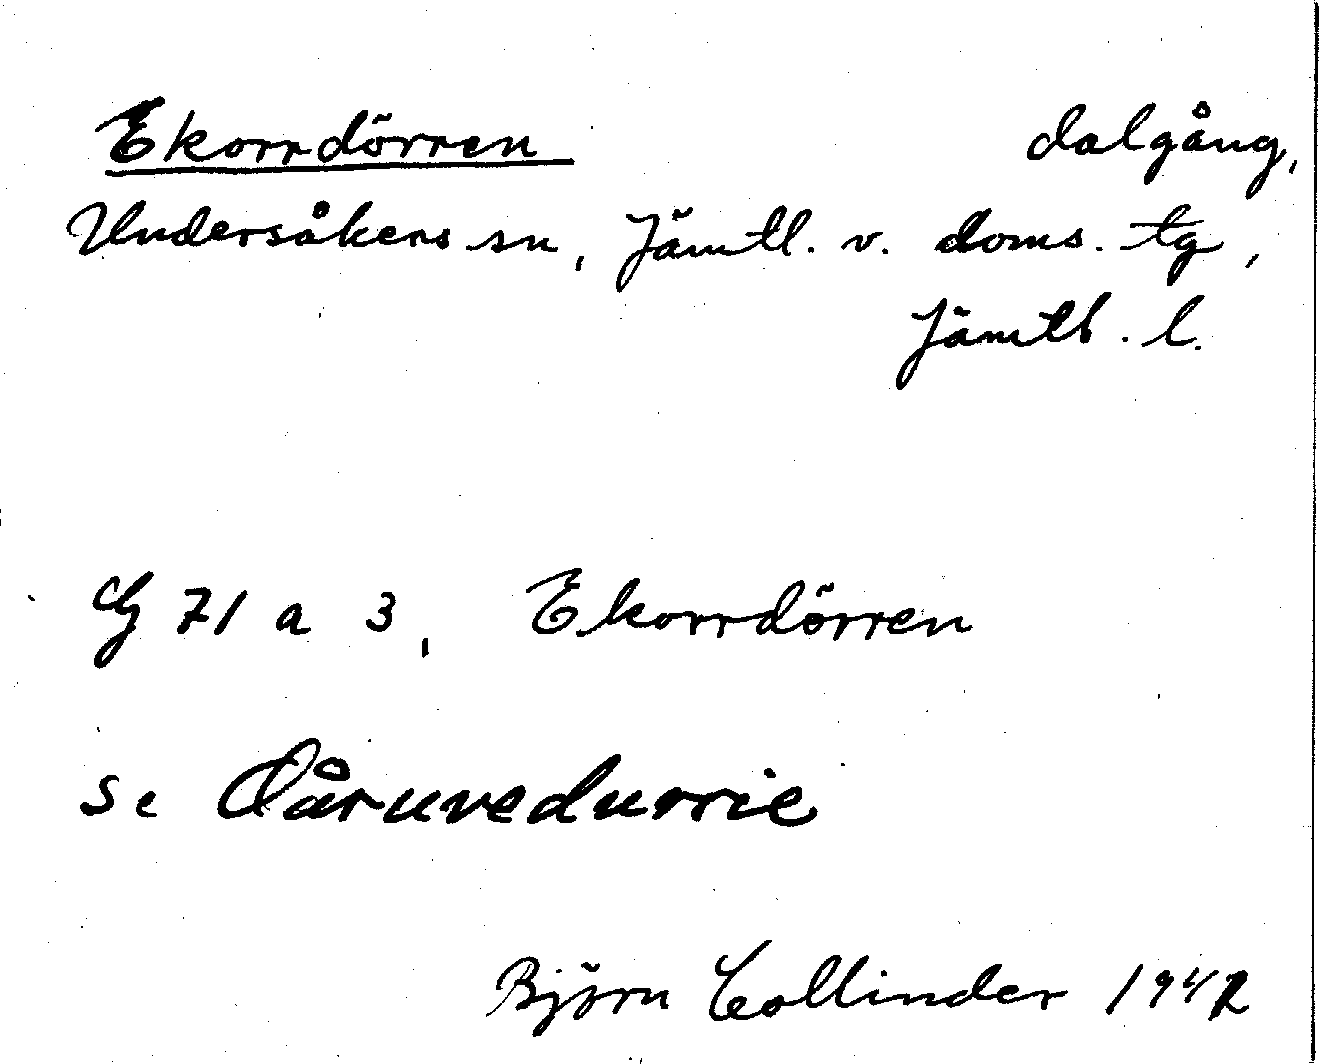 Ekorrdörren dalgång,
Undersåkers sn, Jämtl. v. doms. tg,
Jämtl. l.
G 71 a 3, Ekorrdörren
se
Björn Collinder 1942